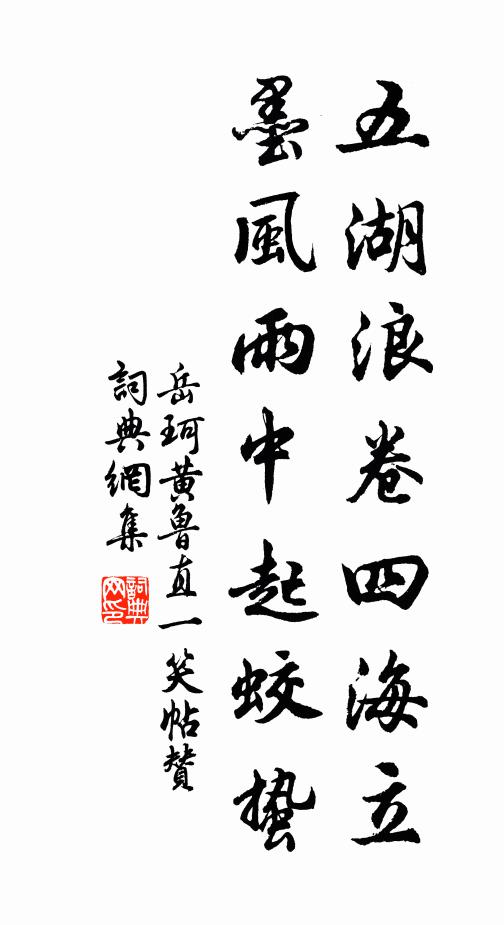 五湖浪卷四海立
墨風雨中起蛟蟄
岳珂黃魯直一笑帖贊
詞典網集
詞典网印